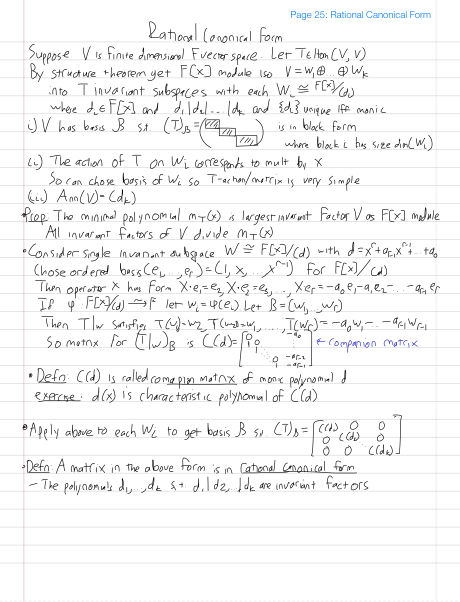 Page 25: Rational Canonical Form
Rational Canonical Form
Suppose V is finite dimensional F vector space. Let T∈Hom(V,V)
By structure theorem get F[x] module iso V=W₁⊕...⊕Wₖ
into T invariant subspaces with each Wᵢ ≅ F[x]/(dᵢ)
where dᵢ∈F[x] and d₁|d₂|...|dₖ and {dᵢ} unique iff monic
i) V has basis B s.t. (T)_B = is in block form
where block i has size dim(Wᵢ)
(ii) The action of T on Wᵢ corresponds to mult by x
So can chose basis of Wᵢ so T-action/matrix is very simple
(iii) Ann(V)=(dₖ)
• Prop: The minimal polynomial m_T(x) is largest invariant factor V as F[x] module
All invariant factors of V divide m_T(x)
• Consider single invariant subspace W ≅ F[x]/(d) with d=xʳ+aᵣ₋₁xʳ⁻¹+...+a₀
Chose ordered basis (e₁,...,eᵣ)=(1,x,...,xʳ⁻¹) for F[x]/(d)
Then operator x has form X·e₁=e₂, X·e₂=e₃,..., Xeᵣ=-a₀e₁-a₁e₂-...-aᵣ₋₁eᵣ
If φ: F[x]/(d) → let wᵢ=φ(eᵢ) Let B=(w₁...wᵣ)
Then T|w satisfies T(w₁)=w₂, ..., T(wᵣ)=-a₀w₁-...-aᵣ₋₁
So matrix for (T|w)_B is C(d)= [0 -a₀ 1 0 1 0 1 -aᵣ₋₂ -aᵣ₋₁] ← Companion matrix
• Defn: C(d) is called matrix of monic polynomial d
exercise: d(x) is characteristic polynomial of C(d)
• Apply above to each Wᵢ to get basis B s.t. (T)_B = [C(d₁) 0 0
0 C(d₂) 0
0 0 C(dₖ)]
• Defn: A matrix in the above form is in rational canonical form
- The polynomials d₁,...,dₖ s.t. d₁|d₂...|dₖ are invariant factors